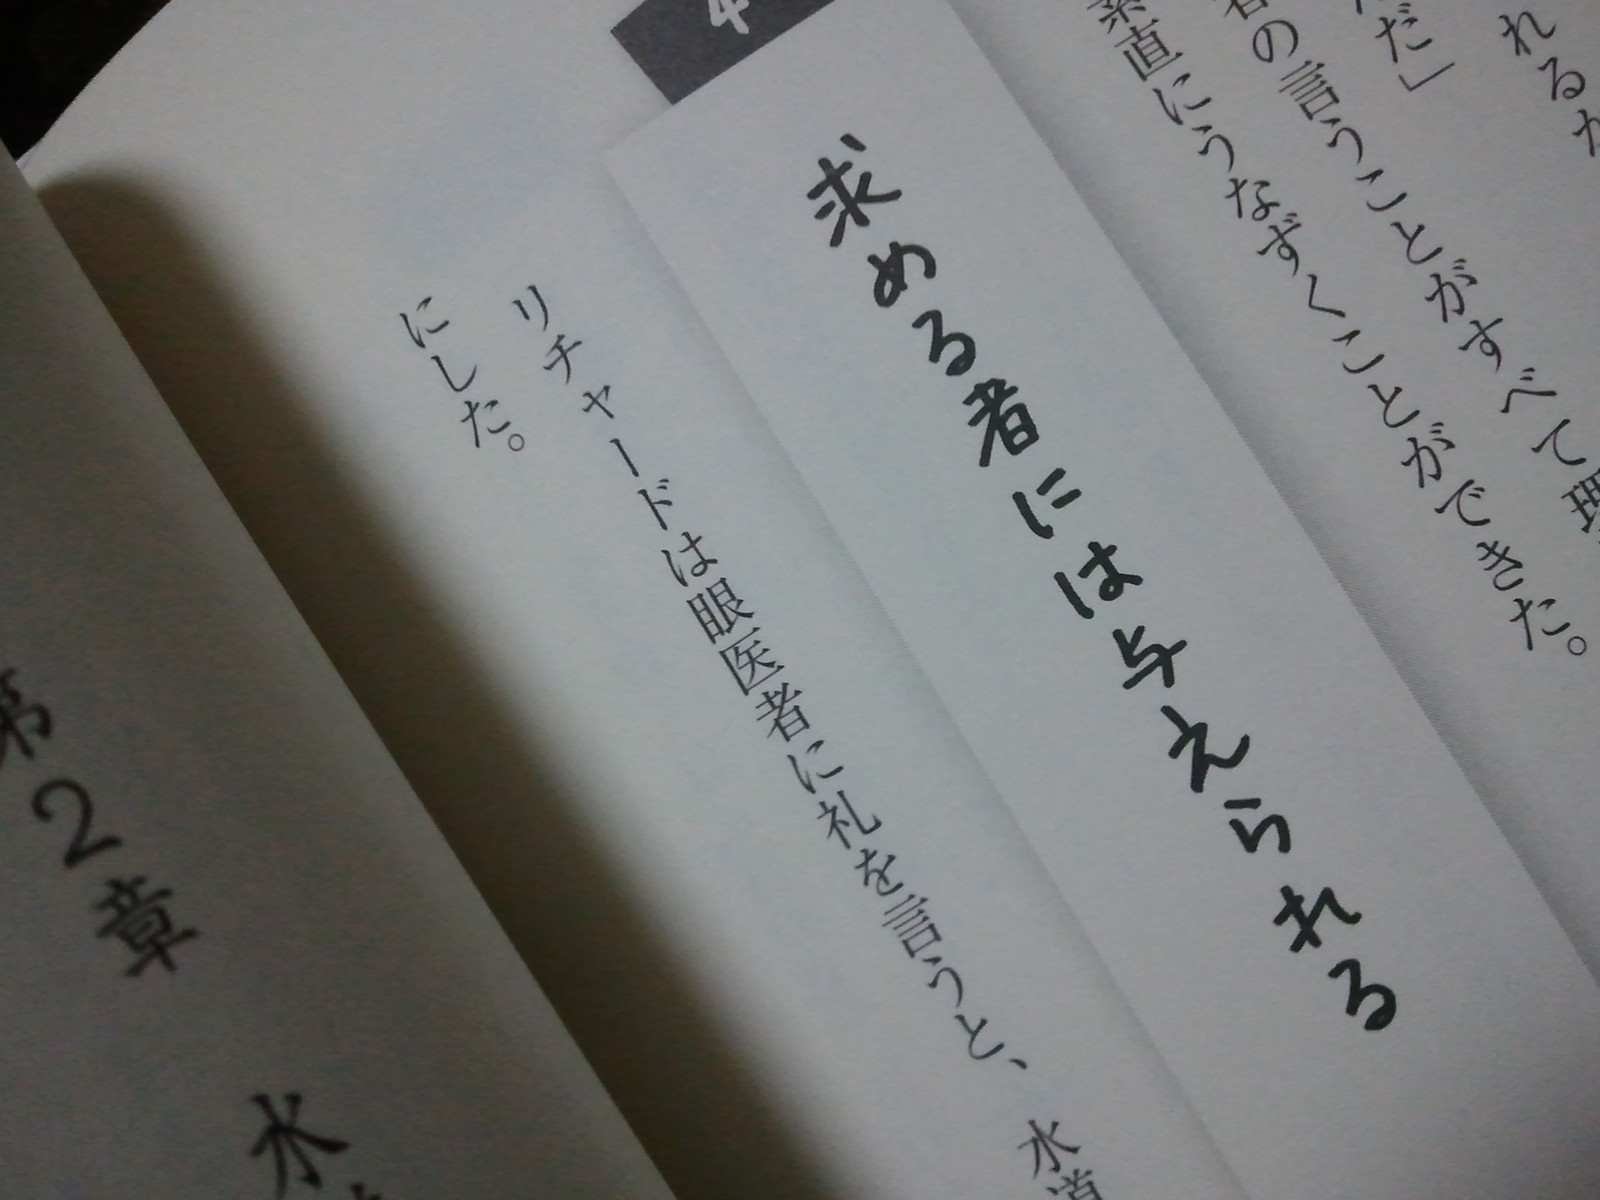 れるか
だ」
者の言うことがすべて理
素直にうなずくことができた。
4
求める者には与えられる
リチャードは眼医者に礼を言うと、水道
にした。
第2章 水